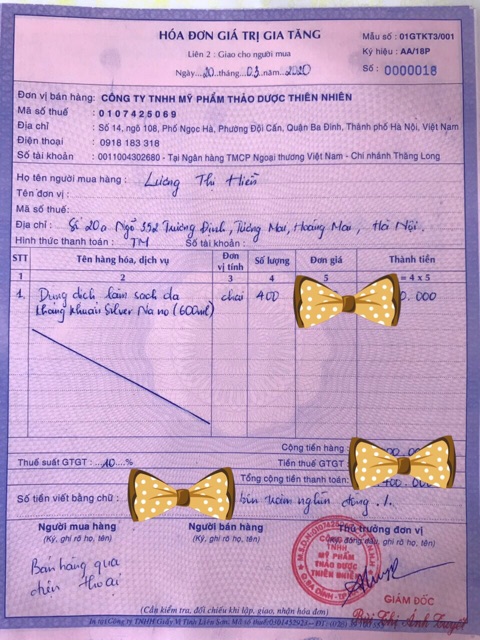 HÓA ĐƠN GIÁ TRỊ GIA TĂNG
Liên 2 : Giao cho người mua
Ngày...20...tháng...03...năm...2020
Mẫu số : 01GTKT3/001
Ký hiệu : AA/18P
Số : 0000018
Đơn vị bán hàng: CÔNG TY TNHH MỸ PHẨM THẢO DƯỢC THIÊN NHIÊN
Mã số thuế : 0107425069
Địa chỉ : Số 14, ngõ 108, Phố Ngọc Hà, Phường Đội Cấn, Quận Ba Đình, Thành phố Hà Nội, Việt Nam
Điện thoại : 0918 183 318
Số tài khoản : 0011004302680 - Tại Ngân hàng TMCP Ngoại thương Việt Nam - Chi nhánh Thăng Long
Họ tên người mua hàng : Lương Thị Hiền
Tên đơn vị :
Mã số thuế:
Địa chỉ : Số 20a Ngõ 352 Trương Định, Tương Mai, Hoàng Mai, Hà Nội.
Hình thức thanh toán : TM Số tài khoản :
STT Tên hàng hóa, dịch vụ Đơn vị tính Số lượng Đơn giá Thành tiền
1 2 3 4 5 = 4 x 5
1. Dung dịch làm sạch da chai 400 0.000
kháng khuẩn Silver Nano (600ml)
Cộng tiền hàng:
Thuế suất GTGT :...10...% Tiền thuế GTGT :
Tổng cộng tiền thanh toán: 400.000
Số tiền viết bằng chữ : bốn trăm nghìn đồng ./.
Người mua hàng Người bán hàng Thủ trưởng đơn vị
(Ký, ghi rõ họ, tên) (Ký, ghi rõ họ, tên) đóng dấu, ghi rõ họ, tên)
Bán hàng qua
điện thoại
TNHH
MỸ PHẨM
THẢO DƯỢC
THIÊN NHIÊN
GIÁM ĐỐC
Bùi Thị Ánh Tuyết
(Cần kiểm tra, đối chiếu khi lập, giao, nhận hóa đơn)